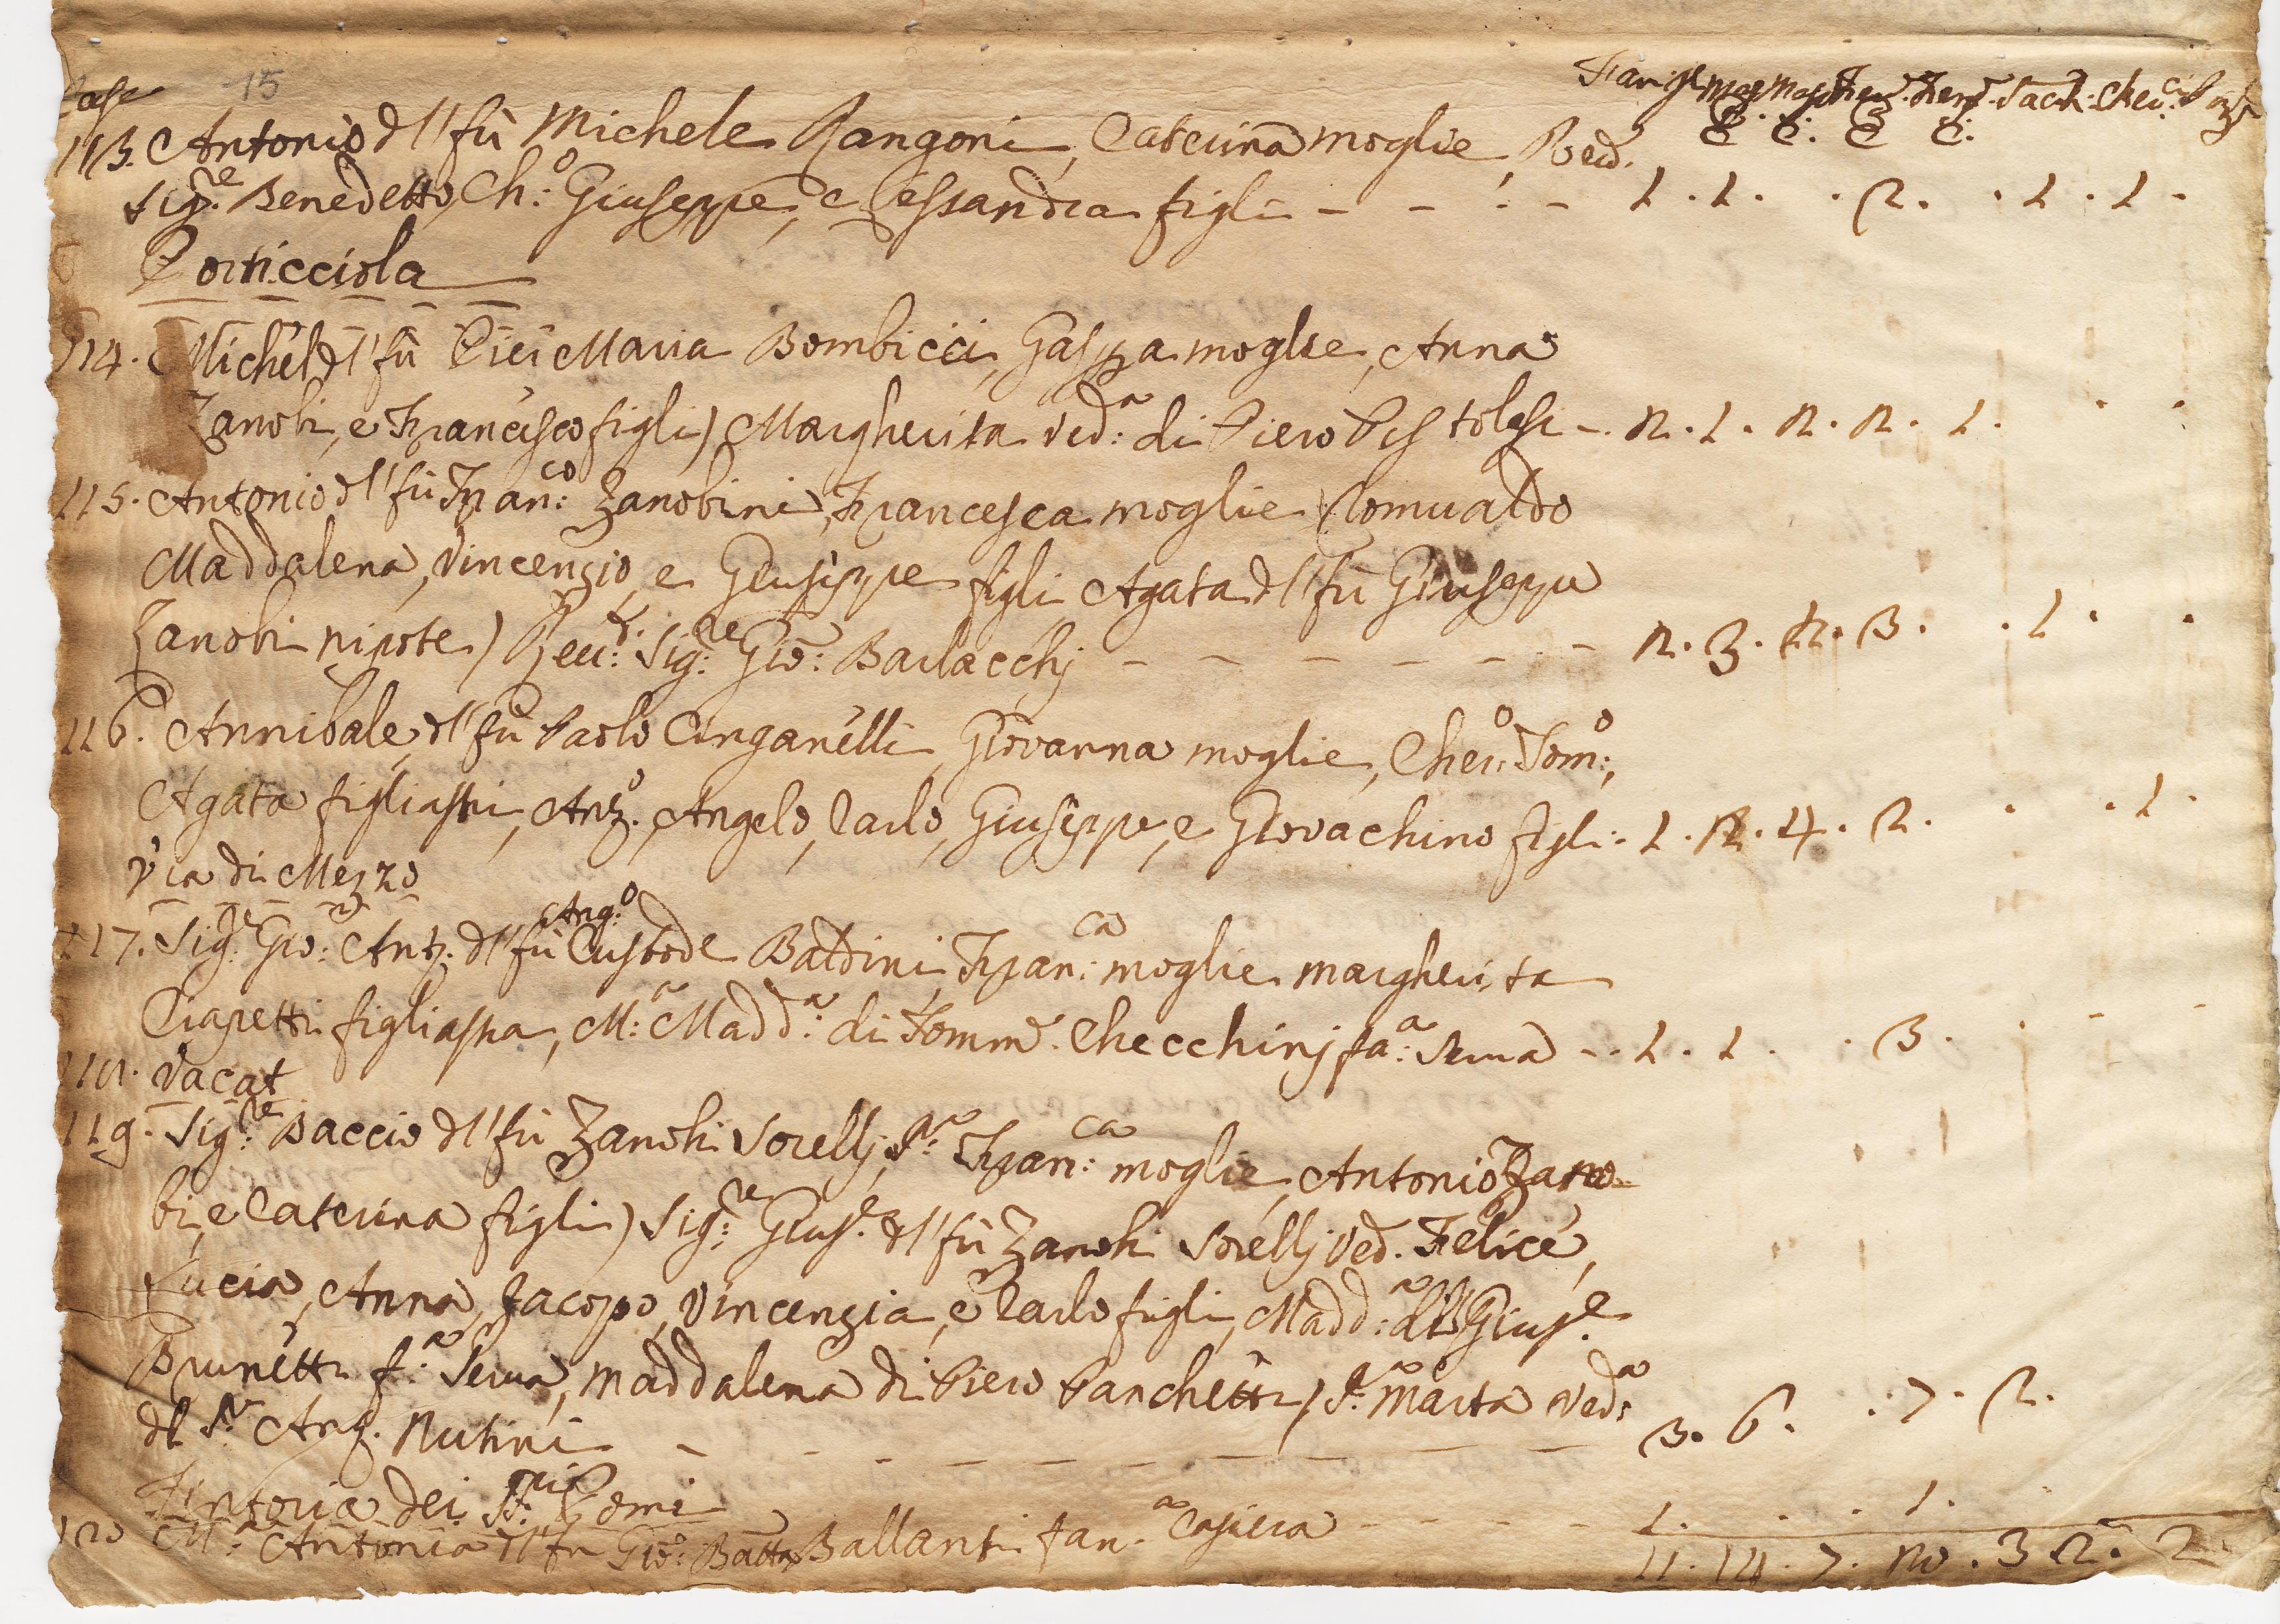 Case 15
Fami: Mas: Mas: Fem: Fem: Sacer: Cheri:
C. C. C. C.
113. Antonio dl fù Michele Rangoni, Caterina moglie, Rev.
Sig.re Benedetto, Ch.o Giuseppe, e Lessandra figli - - - - 1 . 1 . . 2 . . 1 . 1 .
Porticciola
114. Michel dl fù Pier Maria Bombicci, Gaspa moglie, Anna
Zanobi, e Francesco figli) Margherita ved.a di Piero Pistolesi - . 2 . 1 . 2 . 2 . 1 .
115. Antonio dl fù Fran.co Zanobini, Francesca moglie, Romualdo
Maddalena, Vincenzio, e Giuseppe figli Agata dl fù Giuseppe
Zanobi nipote) Sig.re Gio: Barlacchj - - - - - - 2 . 3 . 2 . 3 . . 1 .
116. Annibale dl fù Paolo Cinganelli Giovanna moglie, Cher.o Tom.o,
Agata figliastri, Ant.o, Angelo, Carlo, Giuseppe, e Giovachino figli . 1 . 2 . 4 . 2 . . . 1 .
Via di Mezzo
117. Sig.re Gio: Ant. dl fù Ang.o Custode Baldini, Fran.ca moglie margherita
Ciapetti figliastra, M.a Madd.a di Tomm.o Checchinj fa.a Serva - . 1 . 1 . . 3 .
118. Vacat
119. Sig.re Baccio dl fù Zanobi Sorellj, S.ra Fran.ca moglie, Antonio Zano-
bi, e Caterina figli) Sig.re Gius.e dl fù Zanobi Sorellj Ved. Felice,
Lucia, Anna, Jacopo, Vincenzia, e Carlo figli, Madd.a dl Gius.e
Brunetti f.a Serva, Maddalena di Piero Panchetti) S.ra Marta ved.a
dl S.r Ang. Nutini - - - - - - - - 3 . 6 . . 7 . 2 .
Fintoria dei SS.ri Comi
120 M.a Antonia dl fù Gio: Batta Ballanti fan.a Casiera - - - - 1 . . . 1 .
11 . 14 . 7 . 20 . 3 . 2 . 2